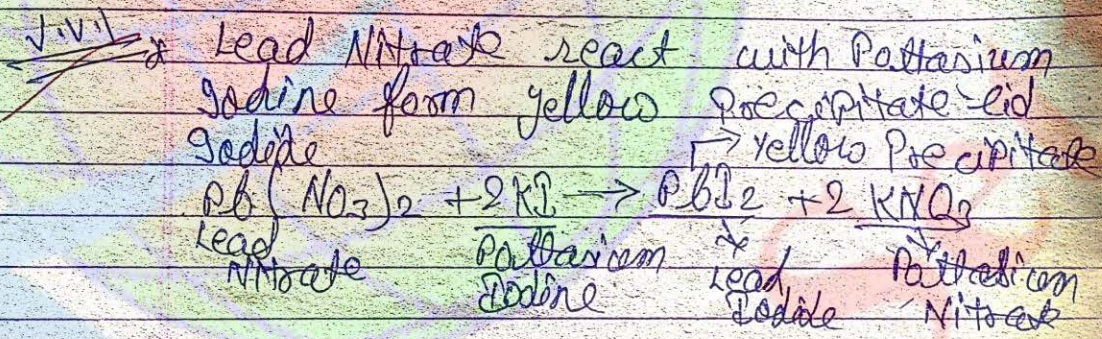 V.V.I * Lead Nitrate react with Pottasium
Iodine form yellow Precipitate Leid
Iodide → Yellow Precipitate
Pb(NO3)2 + 2KI → PbI2 + 2 KNO3
Lead Nitrate Pottasium Iodine Lead Iodide Pottasium Nitrate